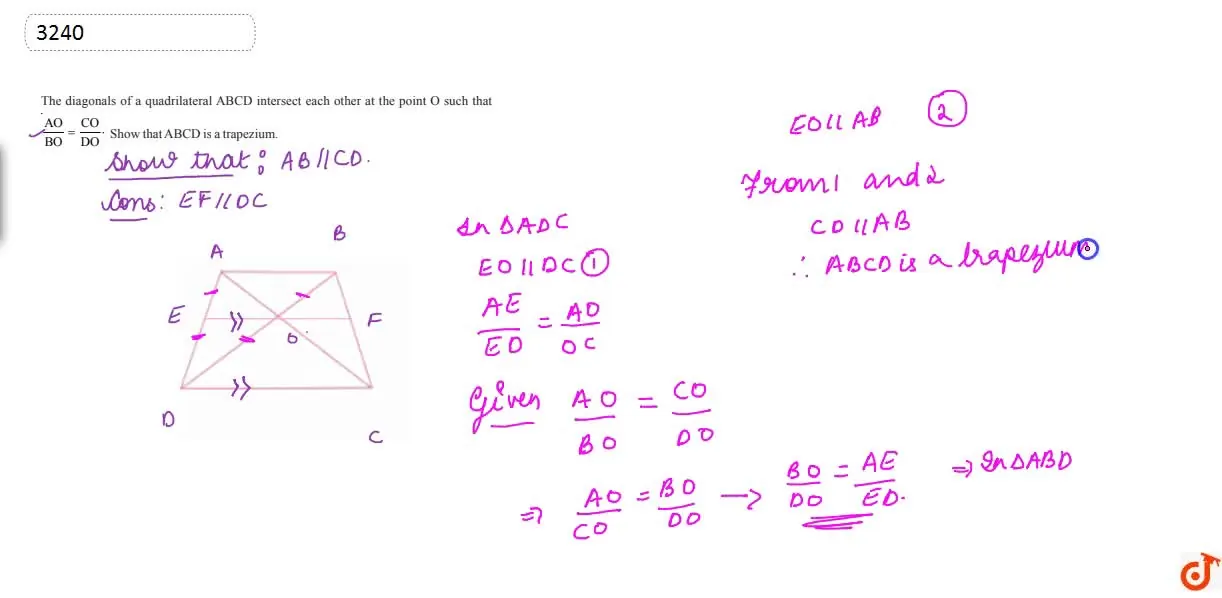 3240
The diagonals of a quadrilateral ABCD intersect each other at the point O such that
AO/BO = CO/DO. Show that ABCD is a trapezium.
Show that : AB//CD.
Cons : EF//DC
A
B
E
F
O
D
C
In ΔADC
EO//DC ①
AE/ED = AO/OC
Given AO/BO = CO/DO
⇒ AO/CO = BO/DO → BO/DO = AE/ED. ⇒ In ΔABD
EO//AB ②
From 1 and 2
CD//AB
∴ ABCD is a trapezium